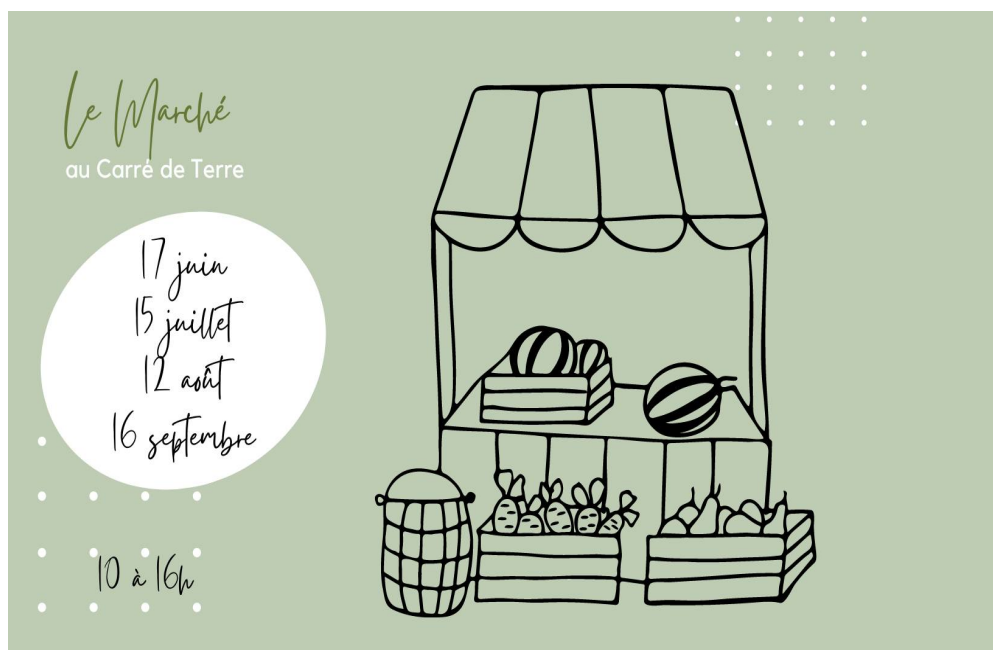 Le Marché
au Carré de Terre
17 juin
15 juillet
12 août
16 septembre
10 à 16h